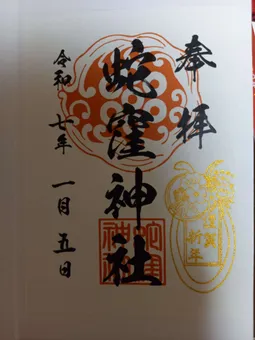 奉拝
蛇窪神社
令和七年 一月五日
賀
新年